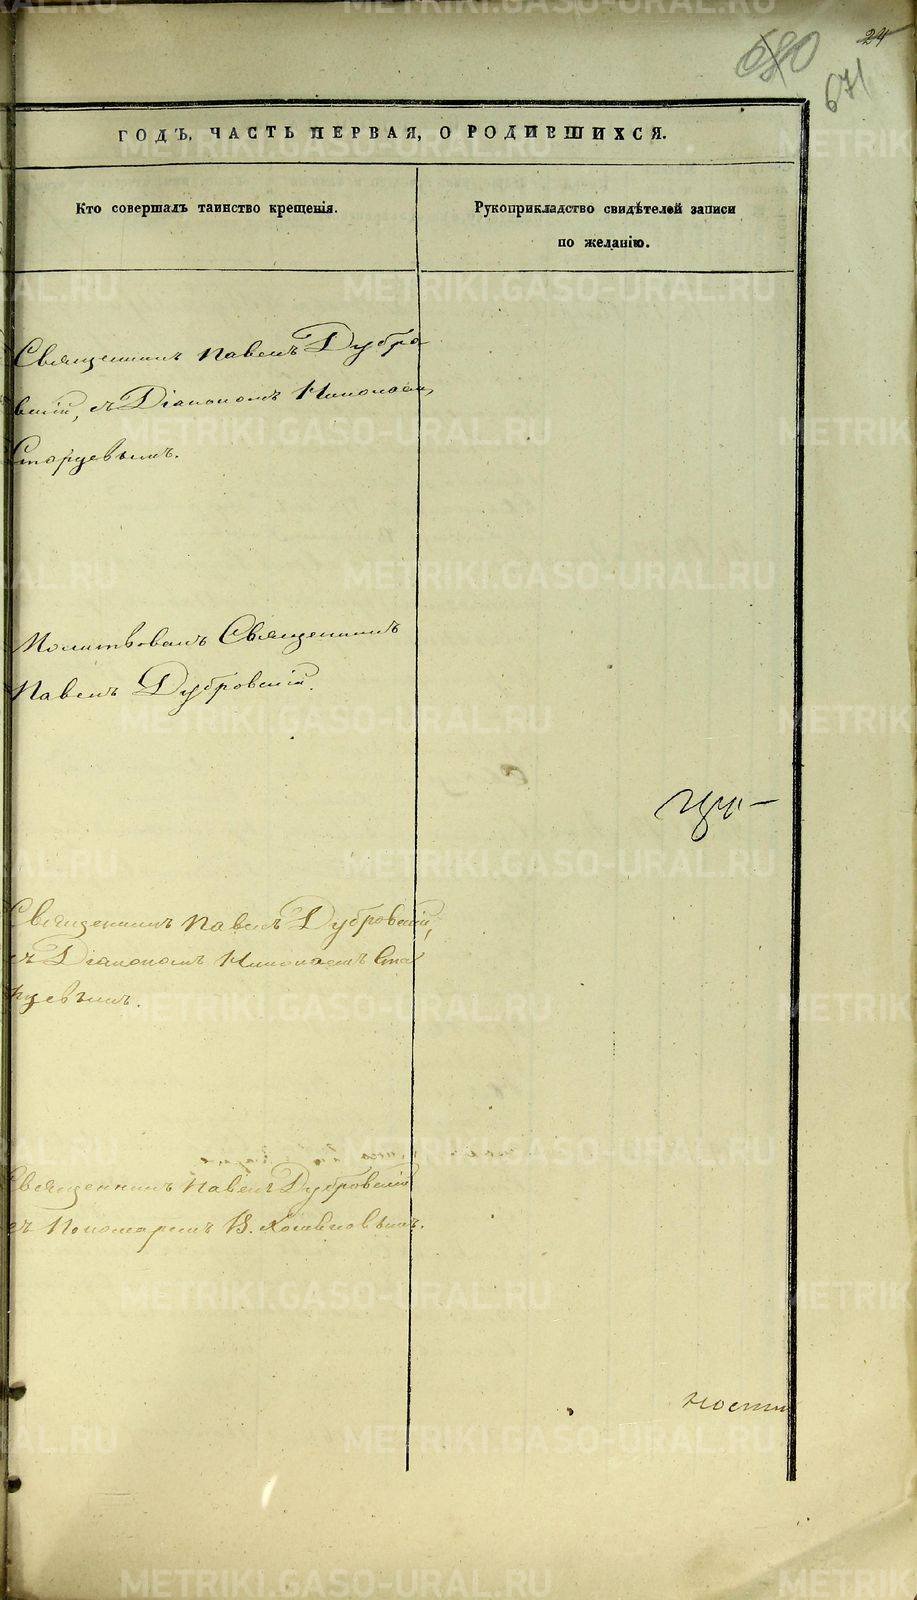 24
680
671
ГОДЪ, ЧАСТЬ ПЕРВАЯ, О РОДИВШИХСЯ.
Кто совершалъ таинство крещенія.
Рукоприкладство свидѣтелей записи
по желанію.
Священникъ Павелъ Дубро-
вскій, съ Діакономъ Николаем
Старцевымъ.
Молитвовалъ Священникъ
Павелъ Дубровскій.
Священникъ Павелъ Дубровскій,
съ Діакономъ Николаемъ Ста
рцевымъ.
Священникъ Павелъ Дубровскій
съ Пономаремъ В.
METRIKI.GASO-URAL.RU